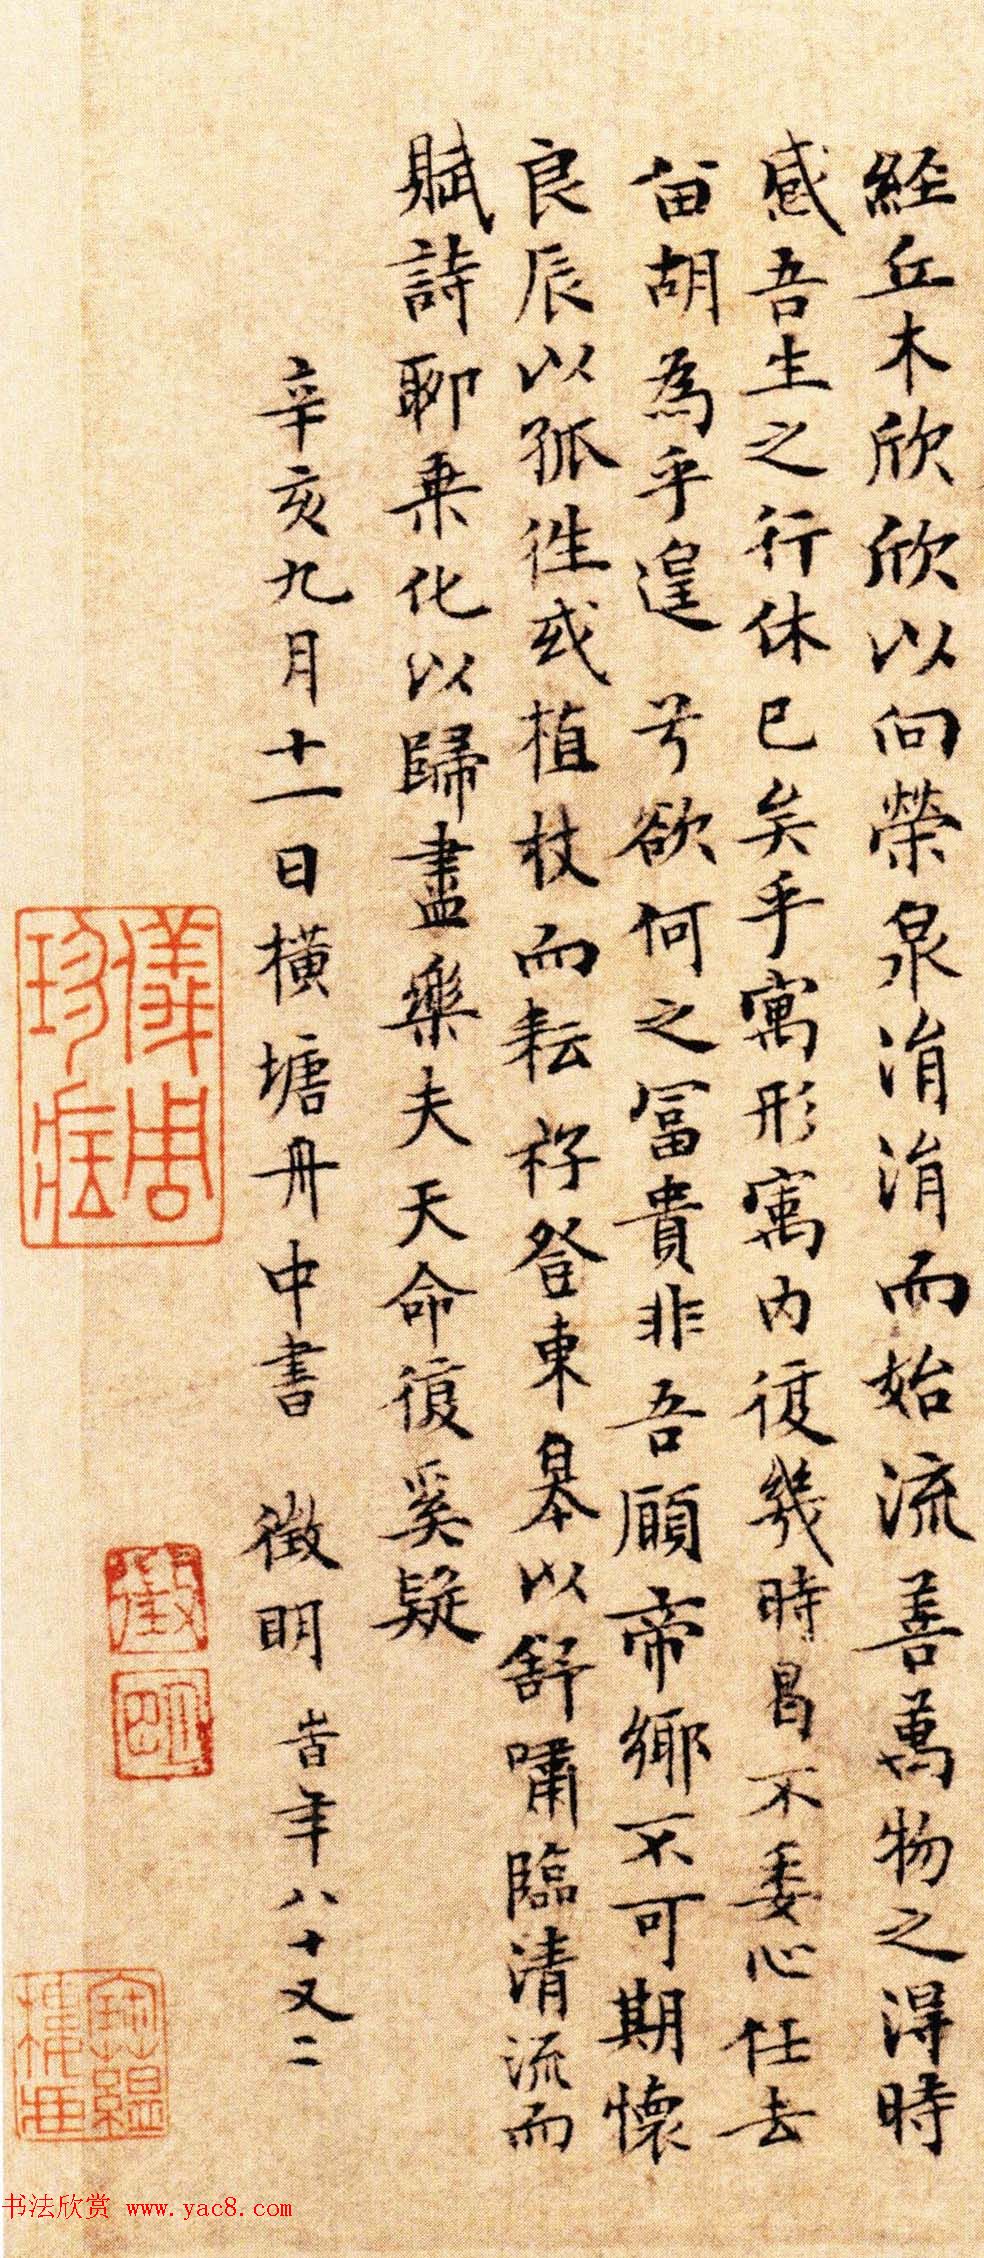 經丘木欣欣以向榮泉涓涓而始流善萬物之得時
感吾生之行休已矣乎寓形寓內復幾時曷不委心任去
留胡為乎遑兮欲何之冨貴非吾願帝鄉不可期懷
良辰以孤往或植杖而耘耔登東皋以舒嘯臨清流而
賦詩聊乘化以歸盡樂夫天命復奚疑
辛亥九月十一日橫塘舟中書 徵明 旹年八十又二
儀周珍藏
徵
明
书法欣赏 www.yac8.com